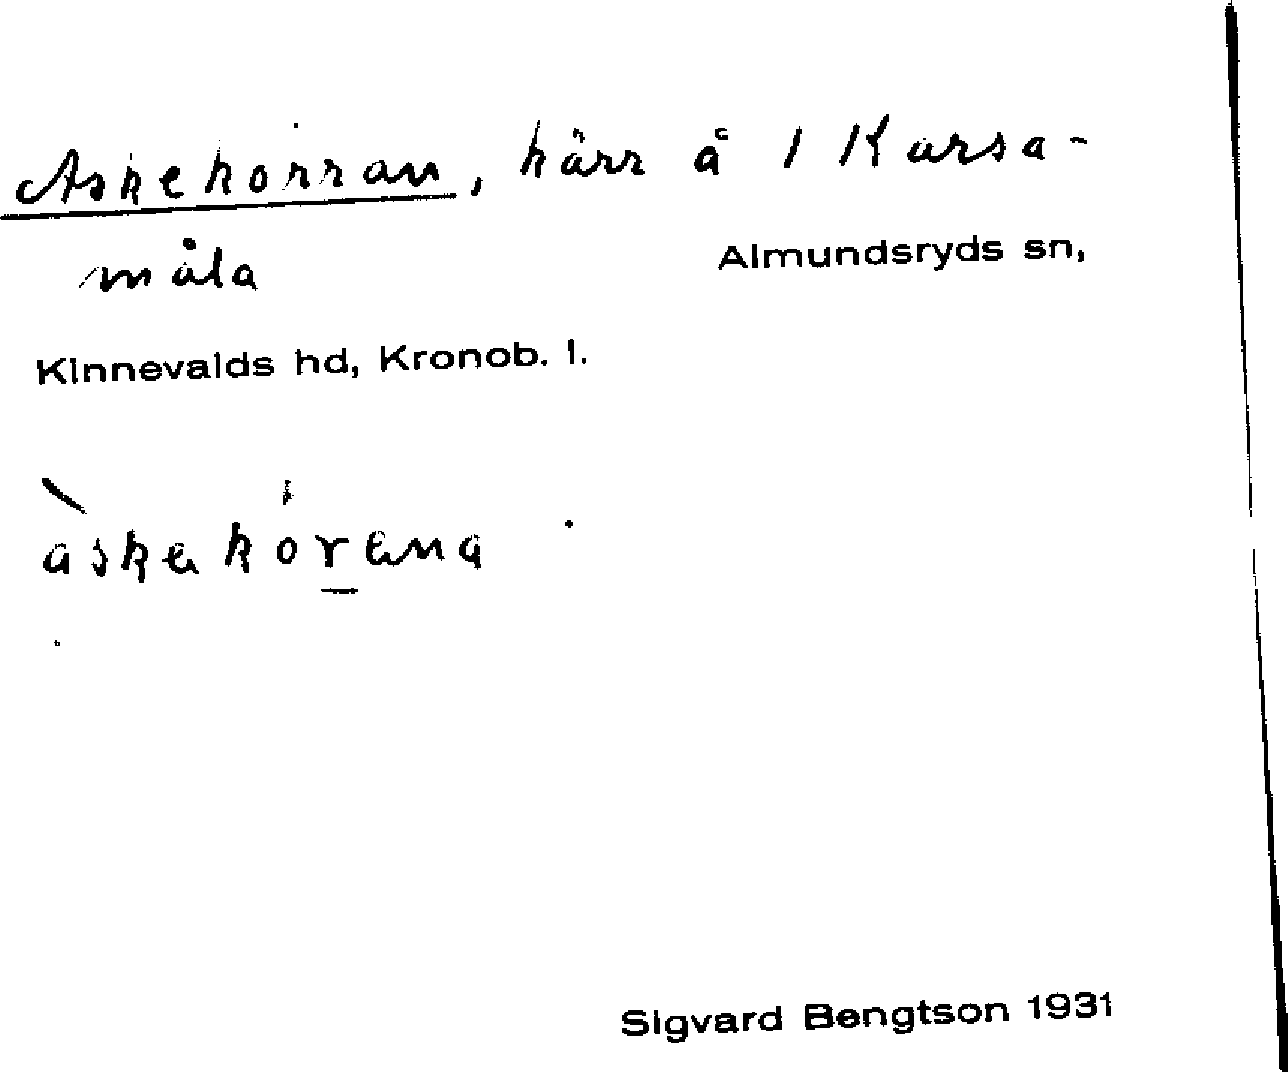 Askekorran, kärr å 1 Karsa-
måla Almundsryds sn,
Kinnevalds hd, Kronob. l.
àskəkórəna
Sigvard Bengtson 1931